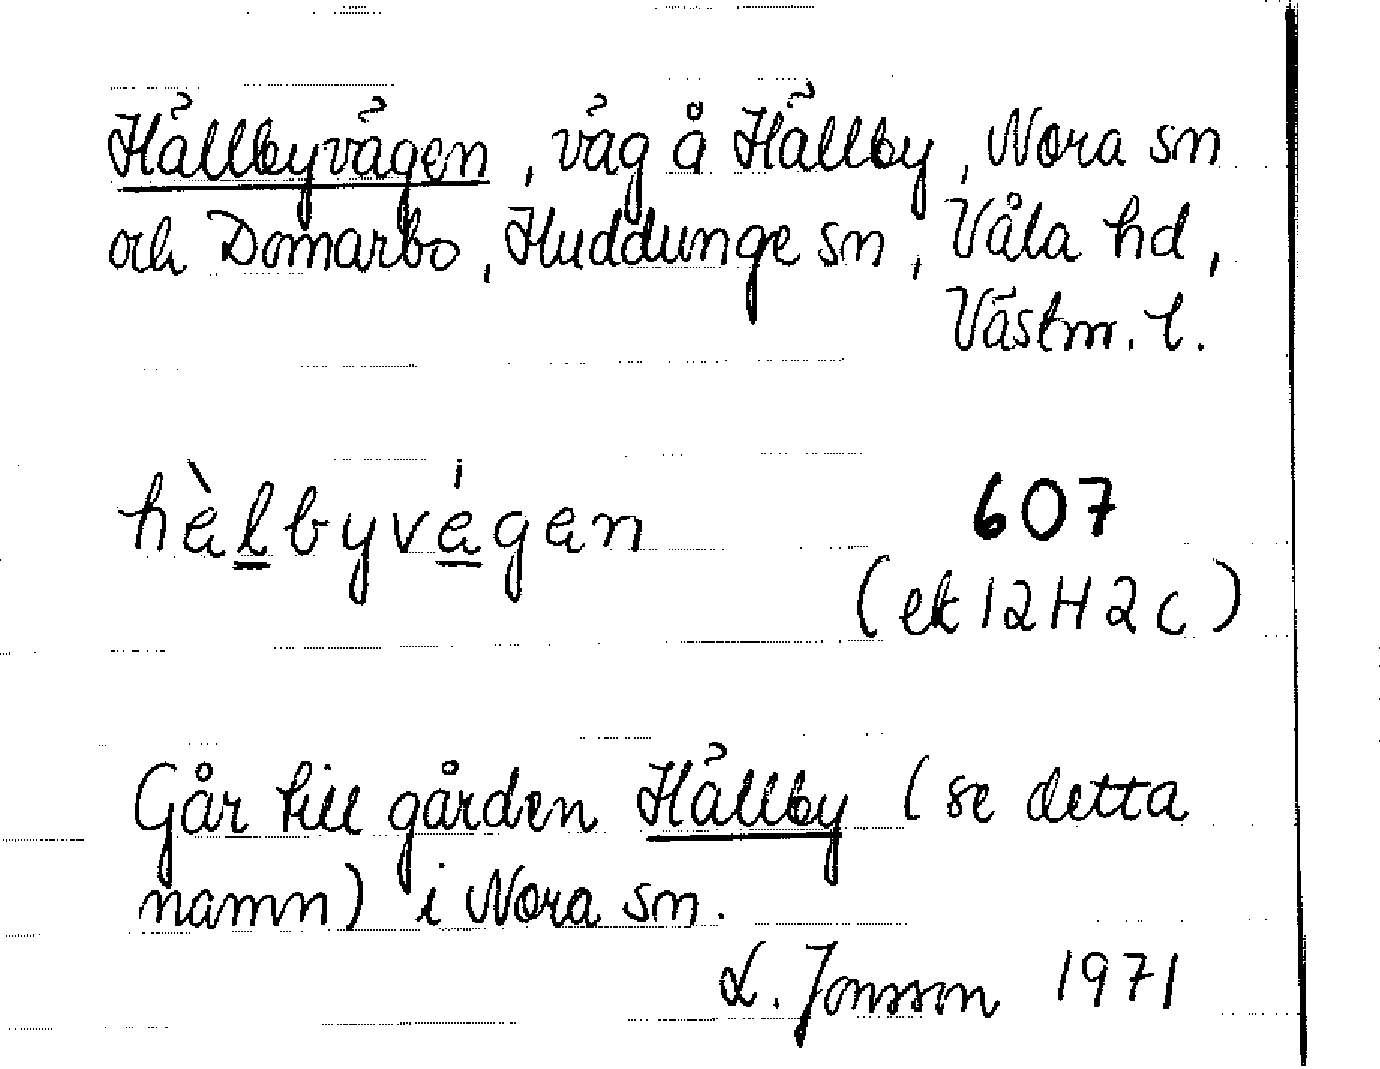 Hällbyvägen, väg å Hällby, Nora sn
och Domarbo, Huddunge sn, Våla hd,
Västm. l.
hàlbyvágan 607
(ek 12H2c)
Går till gården Hällby (se detta
namn) i Nora sn.
L. Jonsson 1971